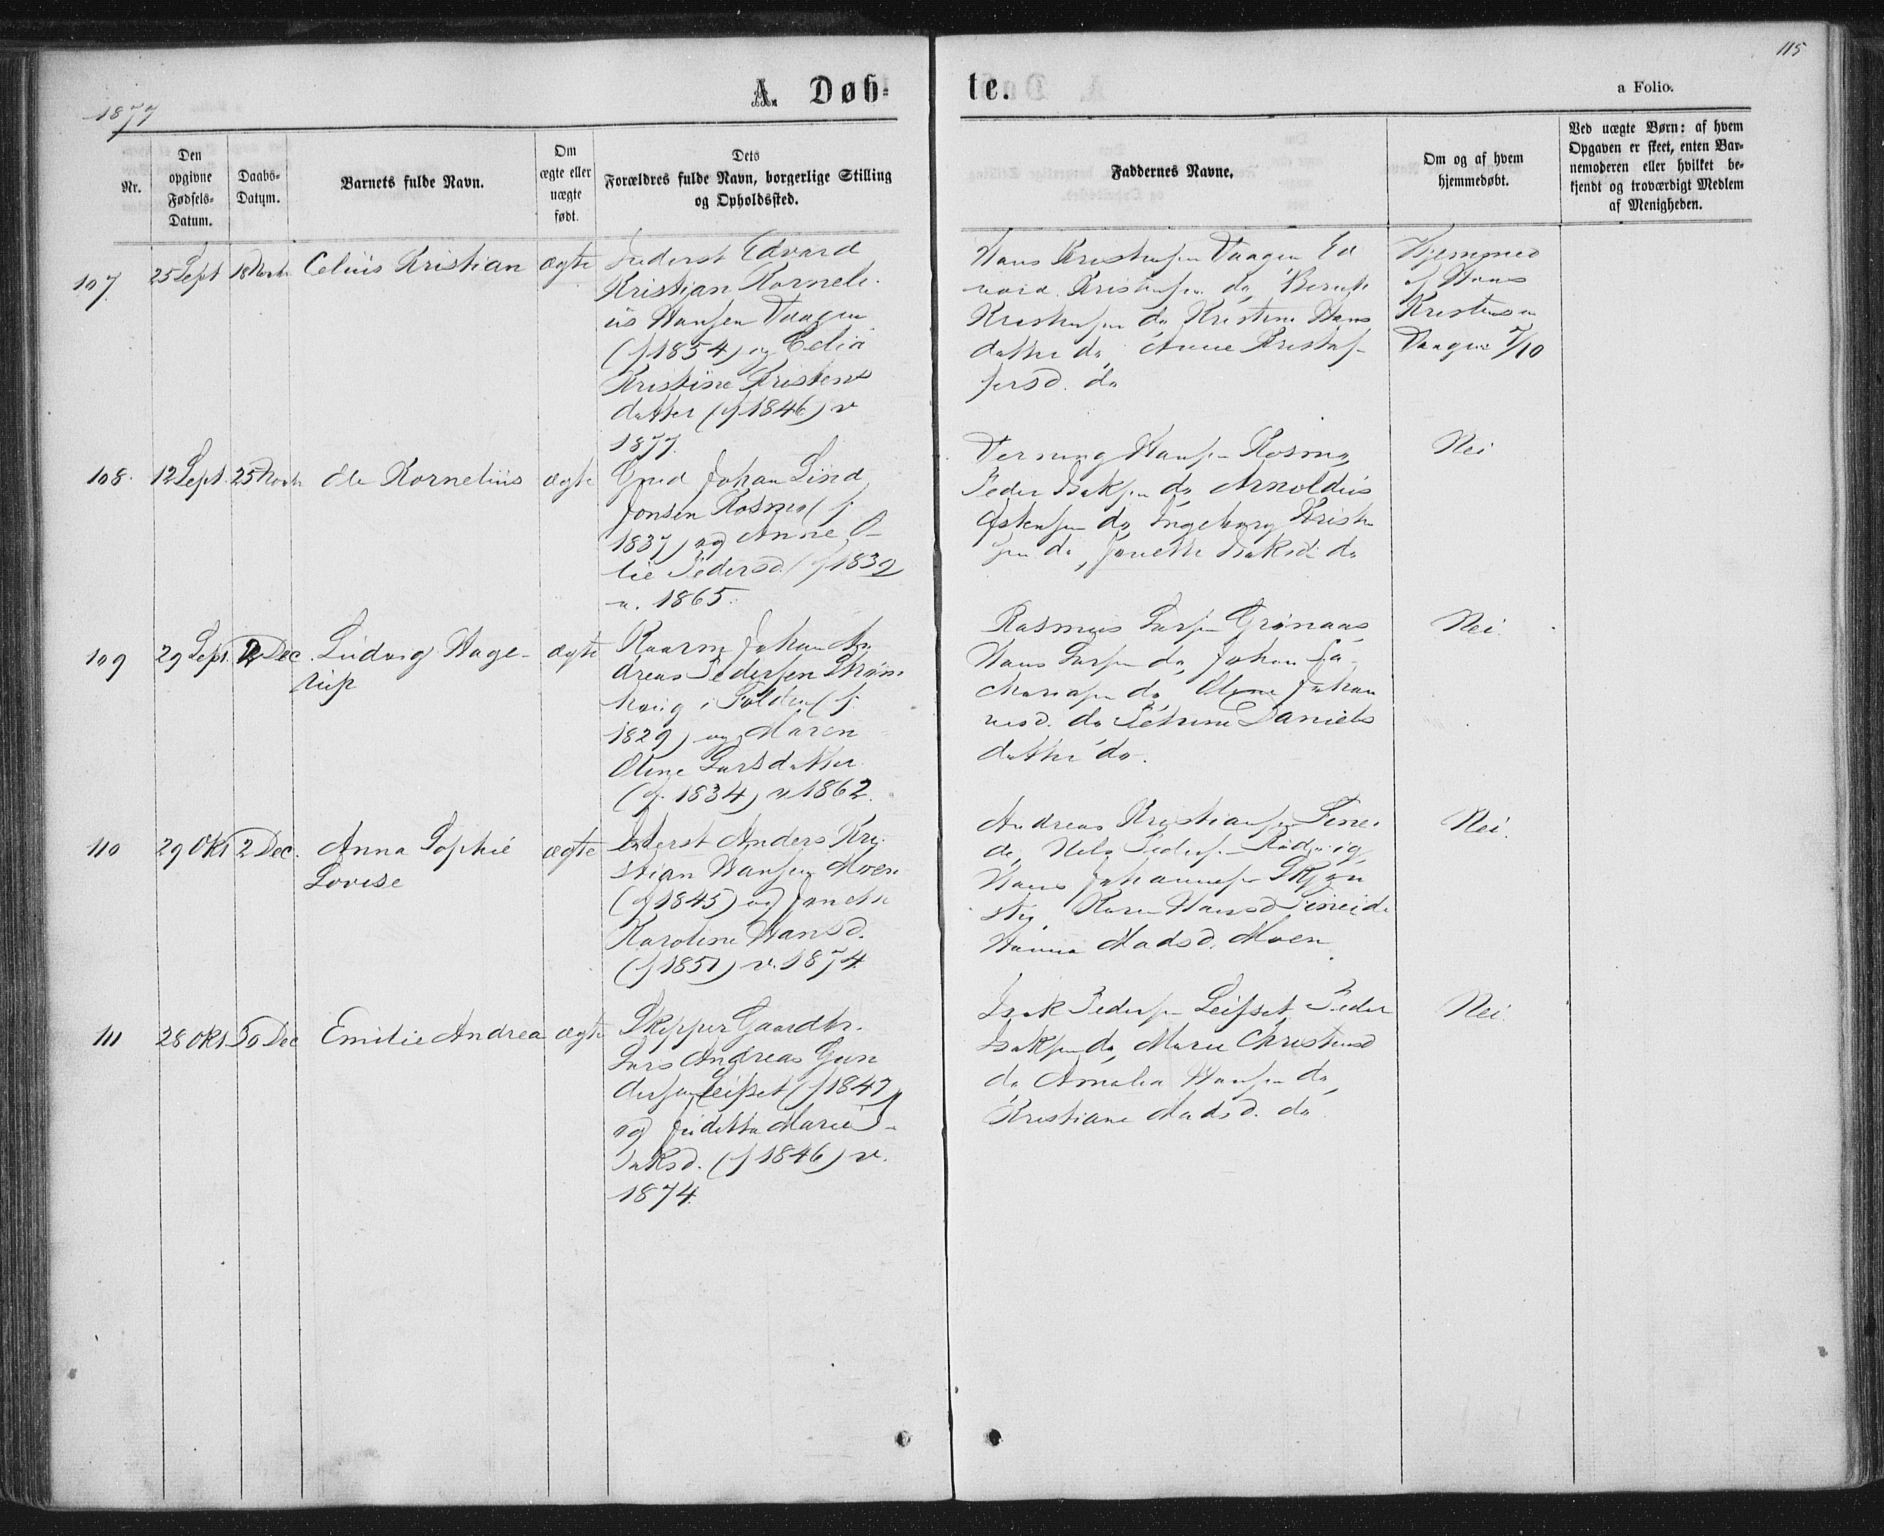 115
A. Døb-
te.
a Folio.
1877
Nr.
Den
opgivne
Fødsels-
Datum.
Daabs-
Datum.
Barnets fulde Navn.
Om
ægte eller
uægte
født.
Dets
Forældres fulde Navn, borgerlige Stilling
og Opholdssted.
Faddernes Navne.
Om og af hvem
hjemmedøbt.
Ved uægte Børn: af hvem
Opgaven er skeet, enten Bar-
nemoderen eller hvilket be-
kjendt og troværdigt Medlem
af Menigheden.
107 25 Sept 18 Novbr Celius Kristian ægte
Inderst Edvard
Kristian Korneli-
us Hansen Vaagen
(f 1854) og Celia
Kristine Kristens
datter (f 1846) v
1877.
Hans Kristensen Vaagen Ed
vard Kristensen do,
Kristensen do Kristine Hans
datter do, Anne Kristof-
fersd. do
Hjemmed
af Hans
Kristensen
Vaagen 7/10
108. 12 Sept. 25 Novbr Ole Kornelius ægte
Gmd Johan Lind
Jonsen Rosmo (f
1837) og Anne O-
lie Pedersd. (f 1839
v. 1865.
Hansen Rosmo,
Peder Isaksen do, Arnoldus
do, Ingeborg
do, Isaksd. do
Nei
109 29 Sept. 2 Dec. Ludvig Hage- ægte
rup
Johan An
dreas Pedersen
i Folden (f.
1829) og Maren
Oline Larsdatter
(f. 1834) v 1862.
Rasmus Larsen Grønaas
Hans Larsen do, Johan Za-
chariasen do, Johan
nesd. do Petrine Daniels
datter do.
Nei.
110 29 Okt 2 Dec. Anna Sophie ægte
Lovise
Inderst Anders Kri-
stian Hansen Moen
(f 1845) og Janette
Karoline Hansd.
(f 1851) v. 1874
Andreas Kristiansen Finei
de, Nels Pedersen
Hans Johannesen Skjøn
stu, Karen Hansd Fineide
Hanna Madsd. Moen
Nei.
111 28 Okt 30 Dec Emilie Andrea ægte
Skipper Gaardbr.
Lars Andreas Gun
dersen Leifset (f 1847
og Juditta Marie I-
saksd. (f 1846) v.
1874.
Isak Pedersen Leifset, Peder
Isaksen do, Marie Christensd
do Amalia Hansen do,
Kristiane Madsd. do
Nei.